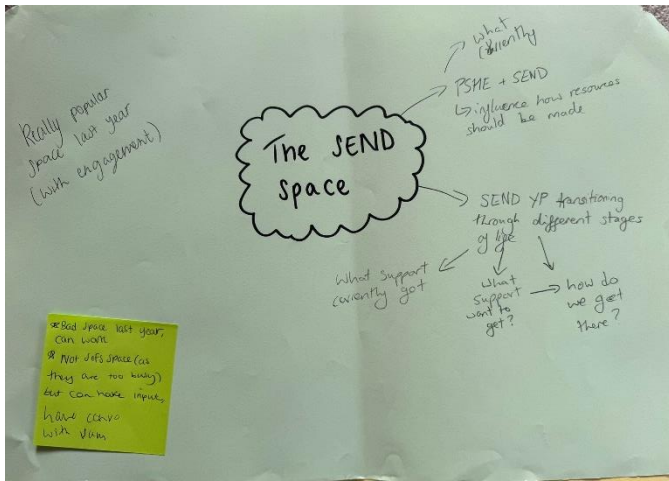 Really popular
space last year
(with engagement)
The SEND
space
what
currently
PSHE + SEND
↳ influence how resources
should be made
SEND YP transitioning
through different stages
of life
What support
currently got
what
support
want to
get?
how do
we get
there?
* Bad space last year,
can work
* Not
space (as
they are too busy)
but can have input,
have convo
with